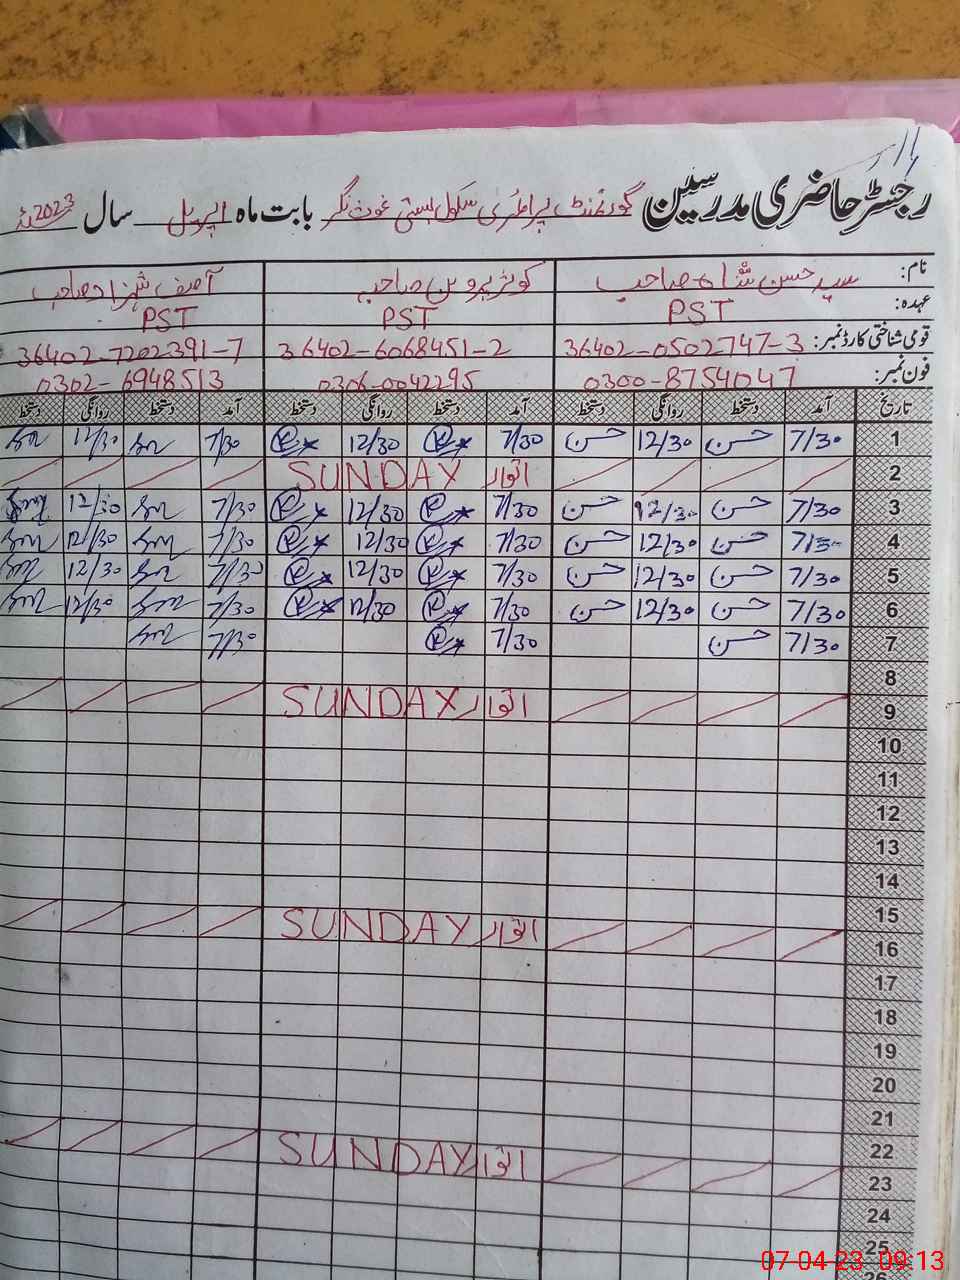 رجسٹر حاضری مدرسین گورنمنٹ پرائمری سکول بستی غوث نگر بابت ماہ اپریل سال 2023ء
نام: سید حسن شاہ صاحب کوثر پروین صاحبہ آصف شہزاد صاحب
عہدہ: PST PST PST
قومی شناختی کارڈ نمبر: 36402-0502747-3 36402-6068451-2 36402-7202391-7
فون نمبر: 0300-8754047 0306-0042295 0302-6948513
تاریخ آمد دستخط روانگی دستخط آمد دستخط روانگی دستخط آمد دستخط روانگی دستخط
1 7/30 حسن 12/30 حسن 7/30 12/30 7/30 12/30
2 SUNDAY اتوار
3 7/30 حسن 12/30 حسن 7/30 12/30 7/30 12/30
4 7/30 حسن 12/30 حسن 7/30 12/30 7/30 12/30
5 7/30 حسن 12/30 حسن 7/30 12/30 7/30 12/30
6 7/30 حسن 12/30 حسن 7/30 12/30 7/30 12/30
7 7/30 حسن 7/30 7/30
8
9 SUNDAY اتوار
10
11
12
13
14
15
16 SUNDAY اتوار
17
18
19
20
21
22
23 SUNDAY اتوار
24
25
26
07-04-23 09:13